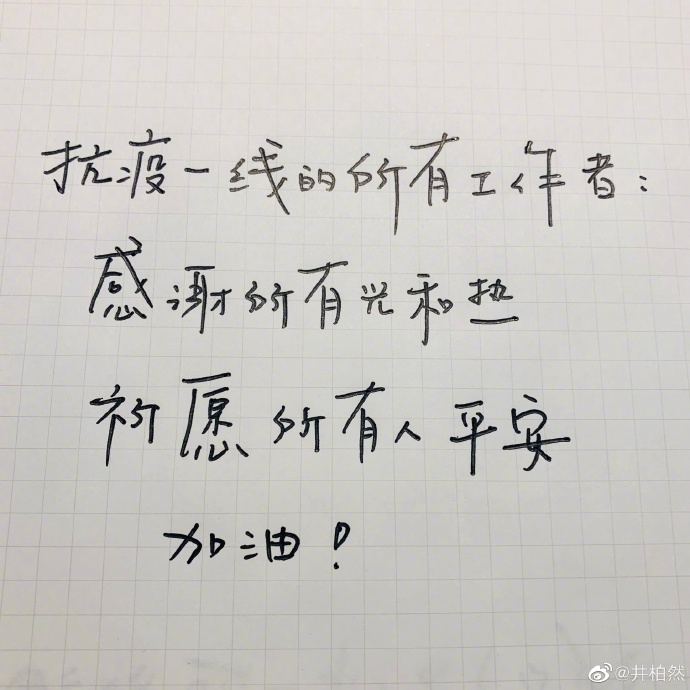 抗疫一线的所有工作者：
感谢所有光和热
祈愿所有人平安
加油！
@井柏然